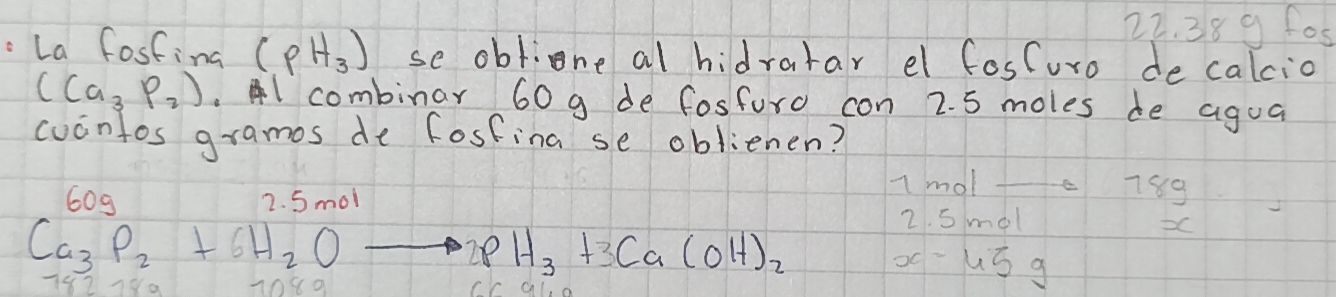 22.38 g fos
• La fosfina (PH3) se obtiene al hidratar el fosfuro de calcio
(Ca3 P2). Al combinar 60 g de fosfuro con 2.5 moles de agua
cuántos gramos de fosfina se obtienen?
1 mol → 18g
60g 2.5 mol
2.5 mol x
Ca3 P2 + 6H2O → 2PH3 + 3Ca(OH)2
x = 45 g
182.18g 108g